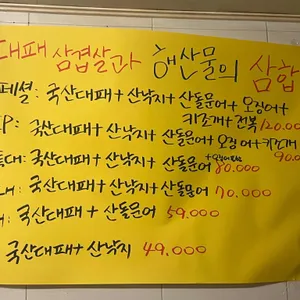 대패 삼겹살과 해산물의 삼합
페셜: 국산대패+산낙지+산돌문어+오징어+
키조개+전복 120.00
P: 국산대패+산낙지+산돌문어+오징어+키조개
90.0
특대: 국산대패+산낙지+산돌문어 80.000
대: 국산대패+산낙지+산돌문어 70.000
국산대패+산돌문어 59.000
국산대패+산낙지 49.000